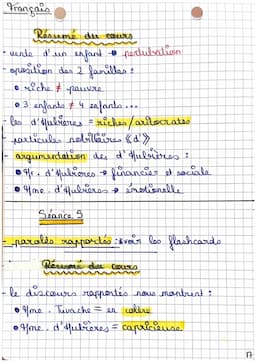 Français
Résumé du cours
- vente d'un enfant → pertubation
- oposition des 2 familles :
• riche ≠ pauvre
• 3 enfants ≠ 4 enfants ...
- les d'Hubières = riches/aritocrates
particules nobiliaires « d' »
- argumentation des d'Hubières :
• Mr. d'Hubières → financier et sociale
• Mme. d'Hubières → émotionelle
Séance 5
- paroles rapportés : voir les flashcards
Résumé du cours
- le discours rapportés nous montrent :
• Mme. Tuvache = en colère
• Mme. d'Hubières = capricieuse